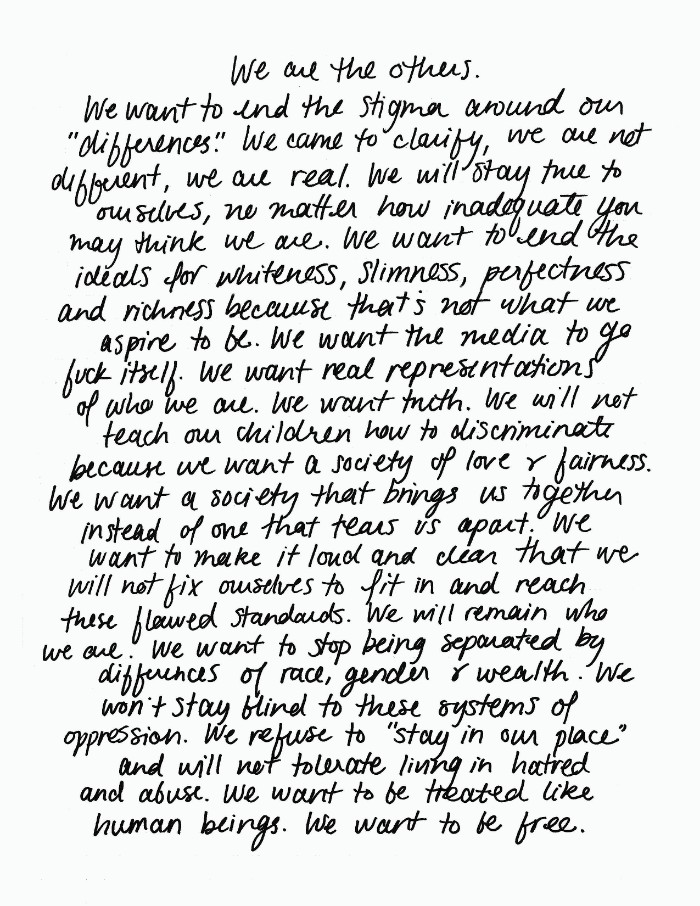 We are the others.
We want to end the stigma around our
"differences". We came to clarify, we are not
different, we are real. We will stay true to
ourselves, no matter how inadequate you
may think we are. We want to end the
ideals for whiteness, slimness, perfectness
and richness because that's not what we
aspire to be. We want the media to go
fuck itself. We want real representations
of who we are. We want truth. We will not
teach our children how to discriminate
because we want a society of love & fairness.
We want a society that brings us together
instead of one that tears us apart. We
want to make it loud and clear that we
will not fix ourselves to fit in and reach
these flawed standards. We will remain who
we are. We want to stop being separated by
differences of race, gender & wealth. We
won't stay blind to these systems of
oppression. We refuse to "stay in our place"
and will not tolerate living in hatred
and abuse. We want to be treated like
human beings. We want to be free.